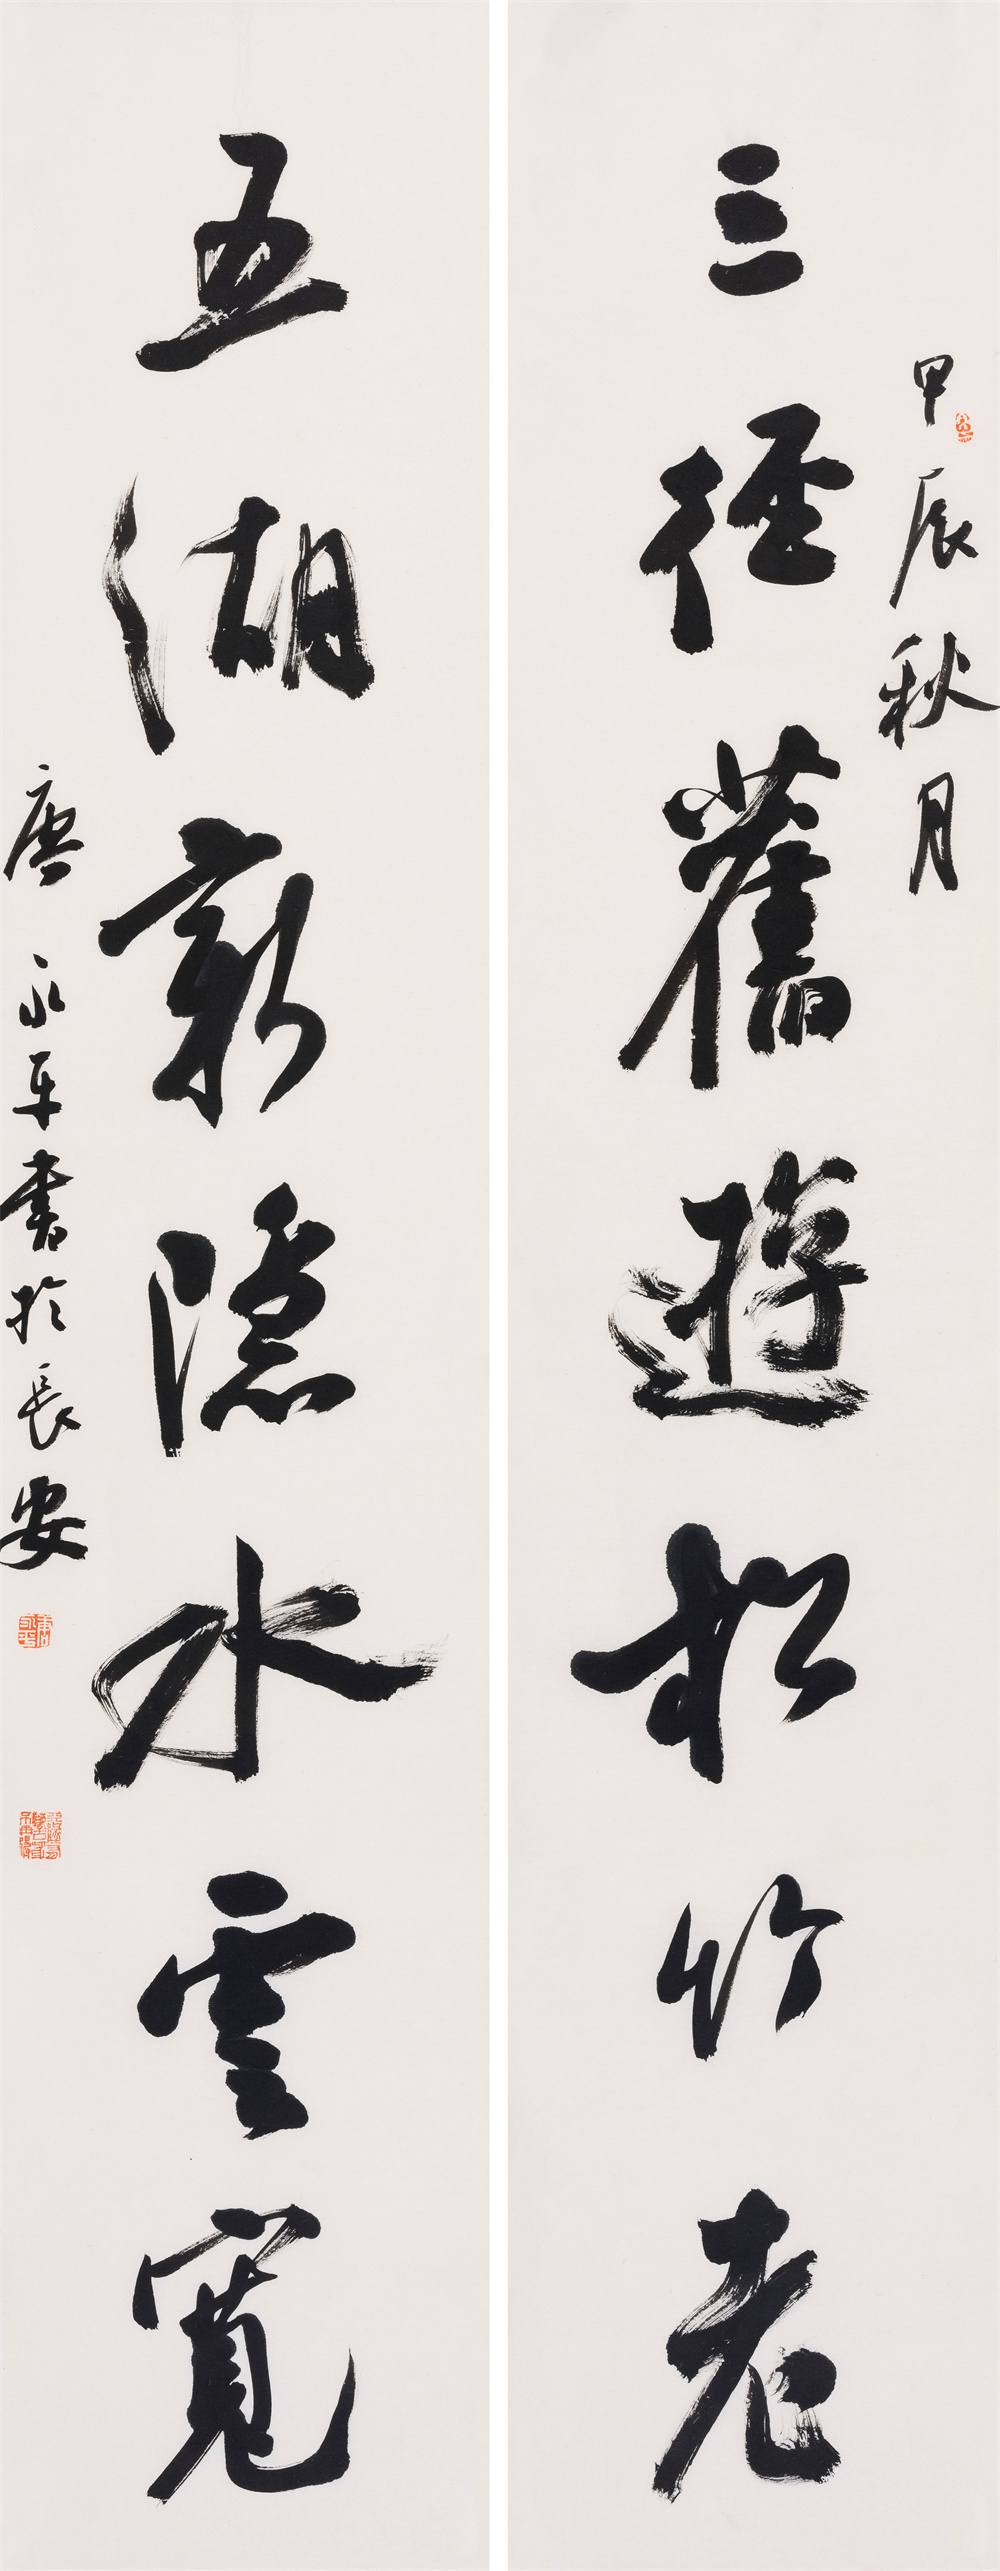 甲辰秋月
三徑舊遊松竹老
五湖新隱水雲寬
唐永平書於長安
唐永平